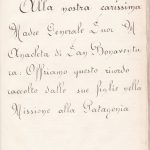 Alla nostra carissima
Madre Generale Suor M
Anacleta di San Bonaventu
ra: Offriamo questo ricordo
raccolto dalle sue figlie nella
Missione alla Patagonia